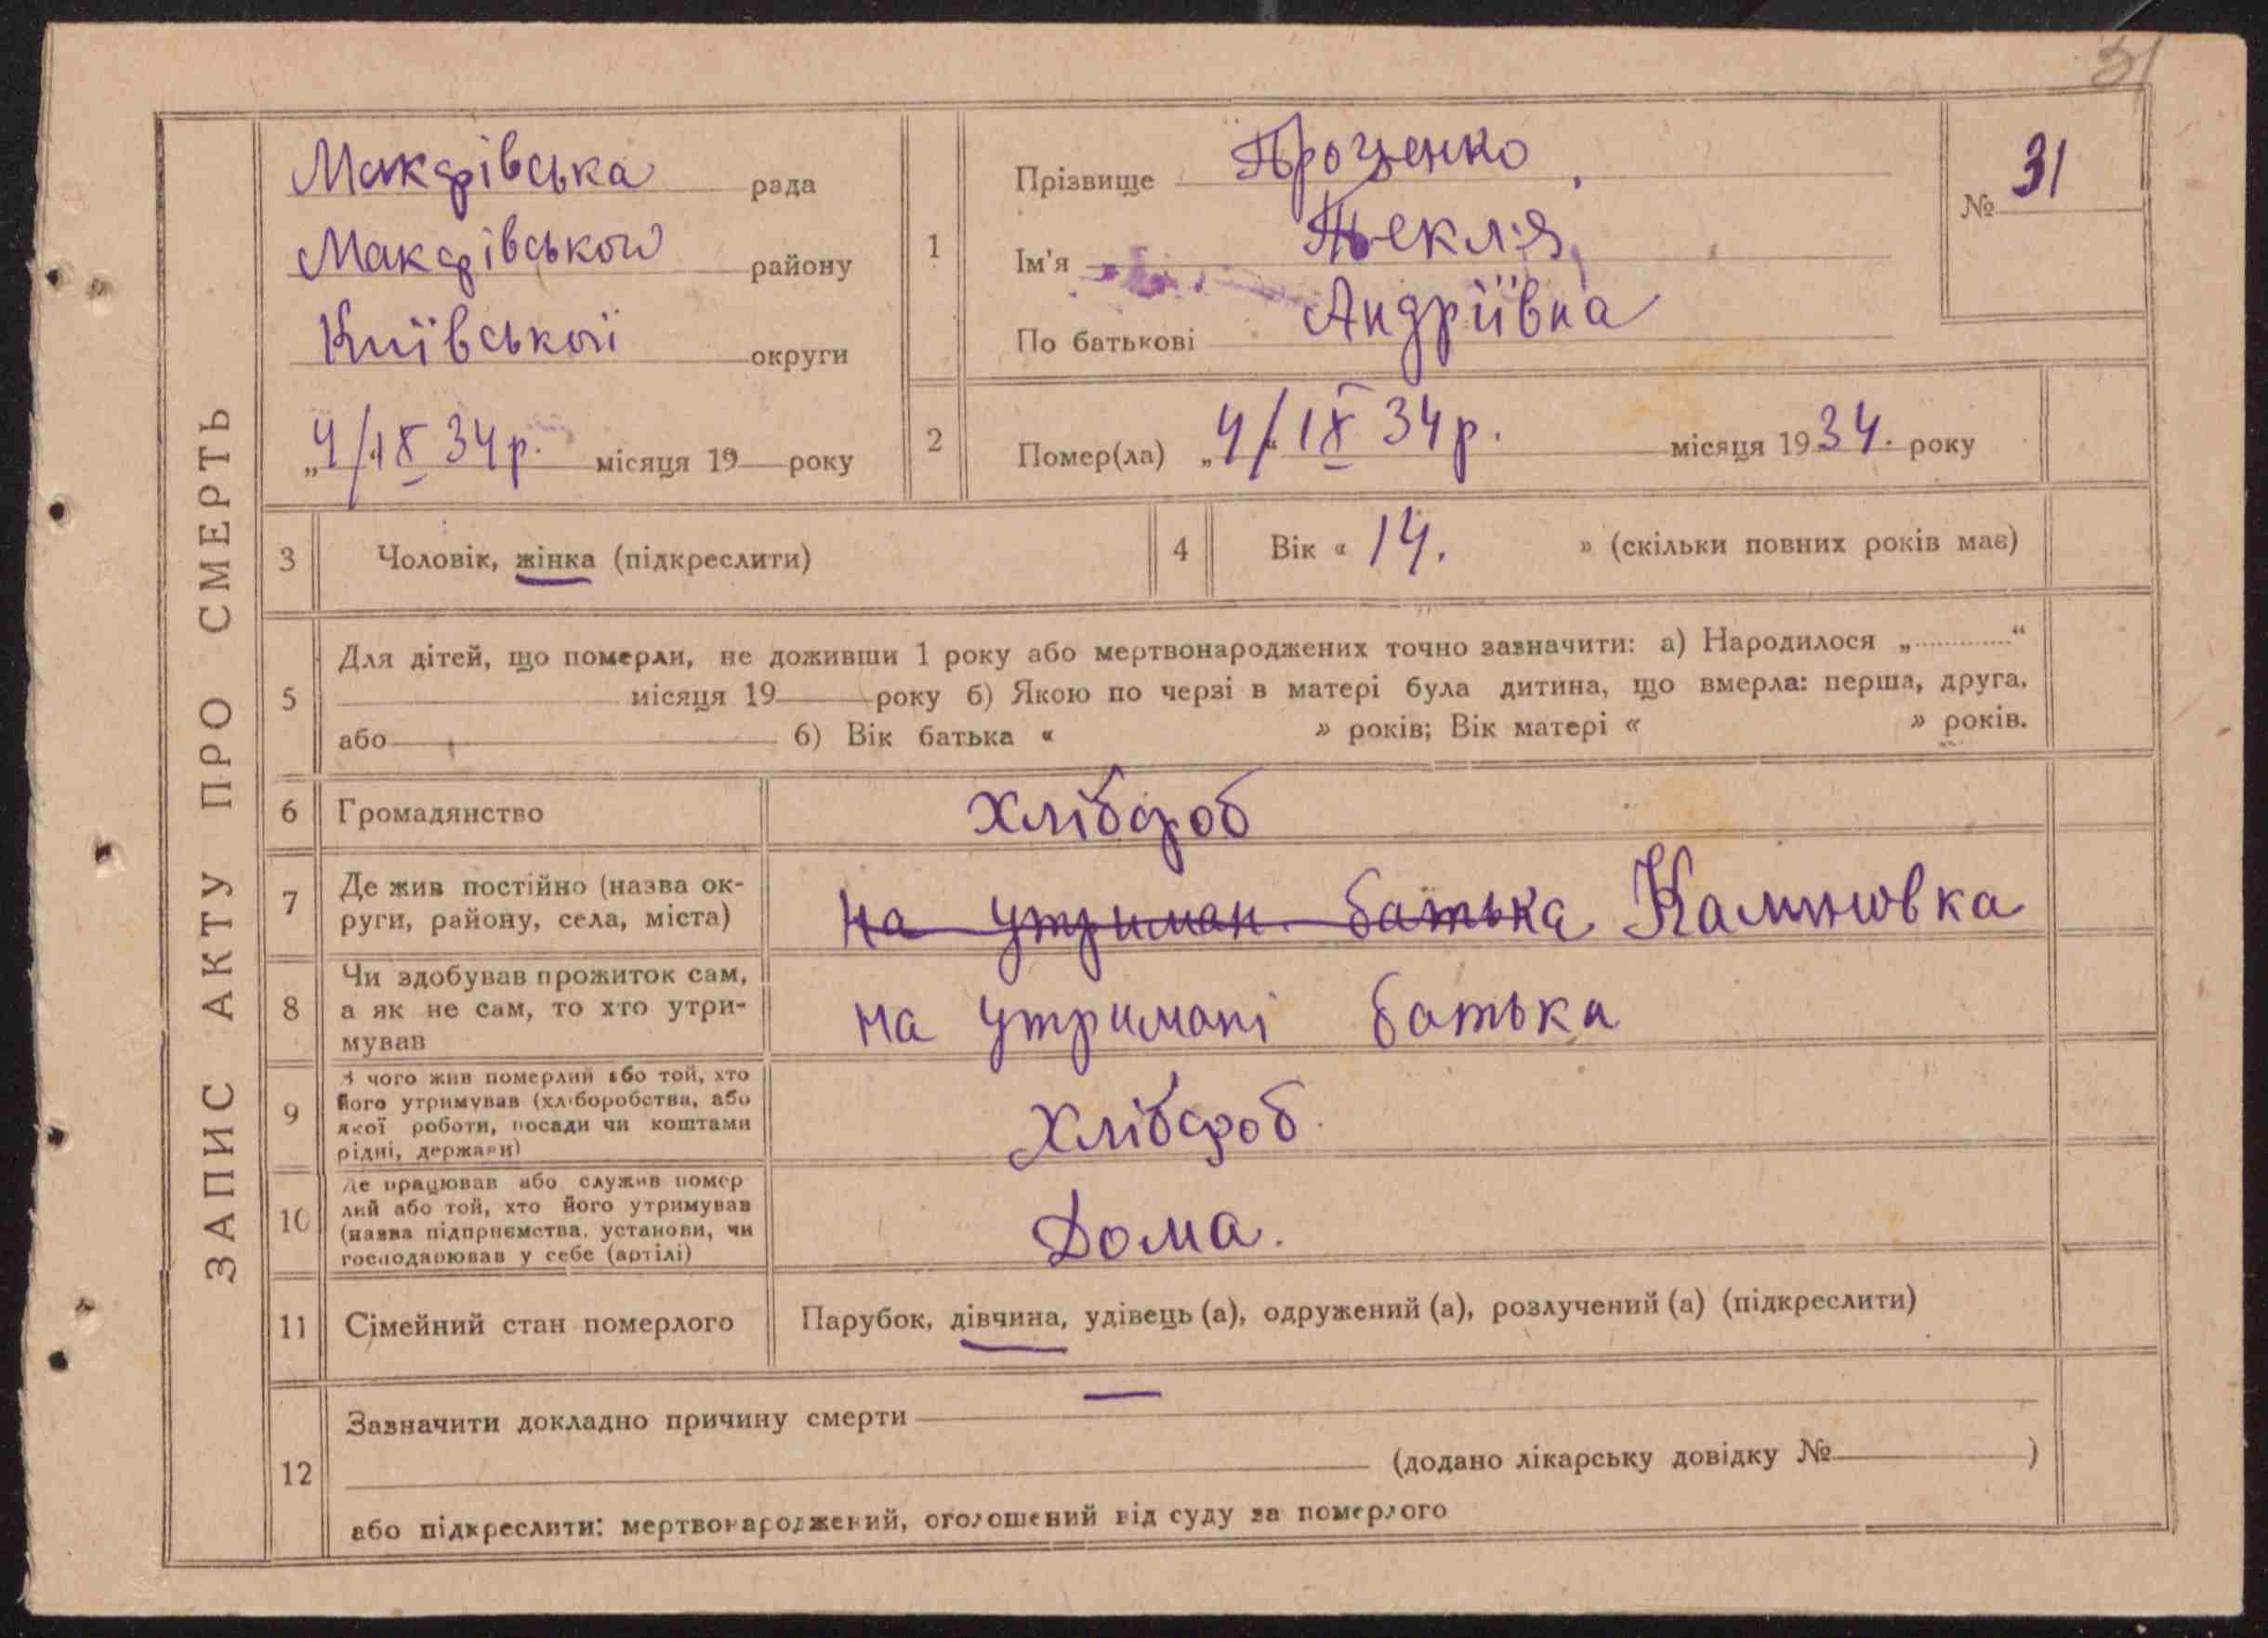 31
ЗАПИС АКТУ ПРО СМЕРТЬ
Макарівська рада
Макарівського району
Київської округи
„4/ІХ 34 р. місяця 19 року
1
Прізвище Проценко
Ім'я Текля
По батькові Андріївна
№ 31
2
Помер(ла) „4/" ІХ 34 р. місяця 1934. року
3 Чоловік, жінка (підкреслити)
4 Вік « 14. » (скільки повних років має)
5
Для дітей, що померли, не доживши 1 року або мертвонароджених точно зазначити: а) Народилося „ “
місяця 19 року б) Якою по черзі в матері була дитина, що вмерла: перша, друга,
або б) Вік батька « » років; Вік матері « » років.
6 Громадянство Хлібороб
7 Де жив постійно (назва ок-
руги, району, села, міста)
на утриман. батька Калиновка
8 Чи здобував прожиток сам,
а як не сам, то хто утри-
мував
на утримані батька
9 З чого жив померлий або той, хто
його утримував (хліборобства, або
якої роботи, посади чи коштами
рідні, держави)
Хлібороб.
10 Де працював або служив помер
лий або той, хто його утримував
(назва підприємства, установи, чи
господарював у себе (артілі)
Дома.
11 Сімейний стан померлого Парубок, дівчина, удівець (а), одружений (а), розлучений (а) (підкреслити)
12
Зазначити докладно причину смерти —
(додано лікарську довідку № )
або підкреслити: мертвонароджений, оголошений від суду за померлого